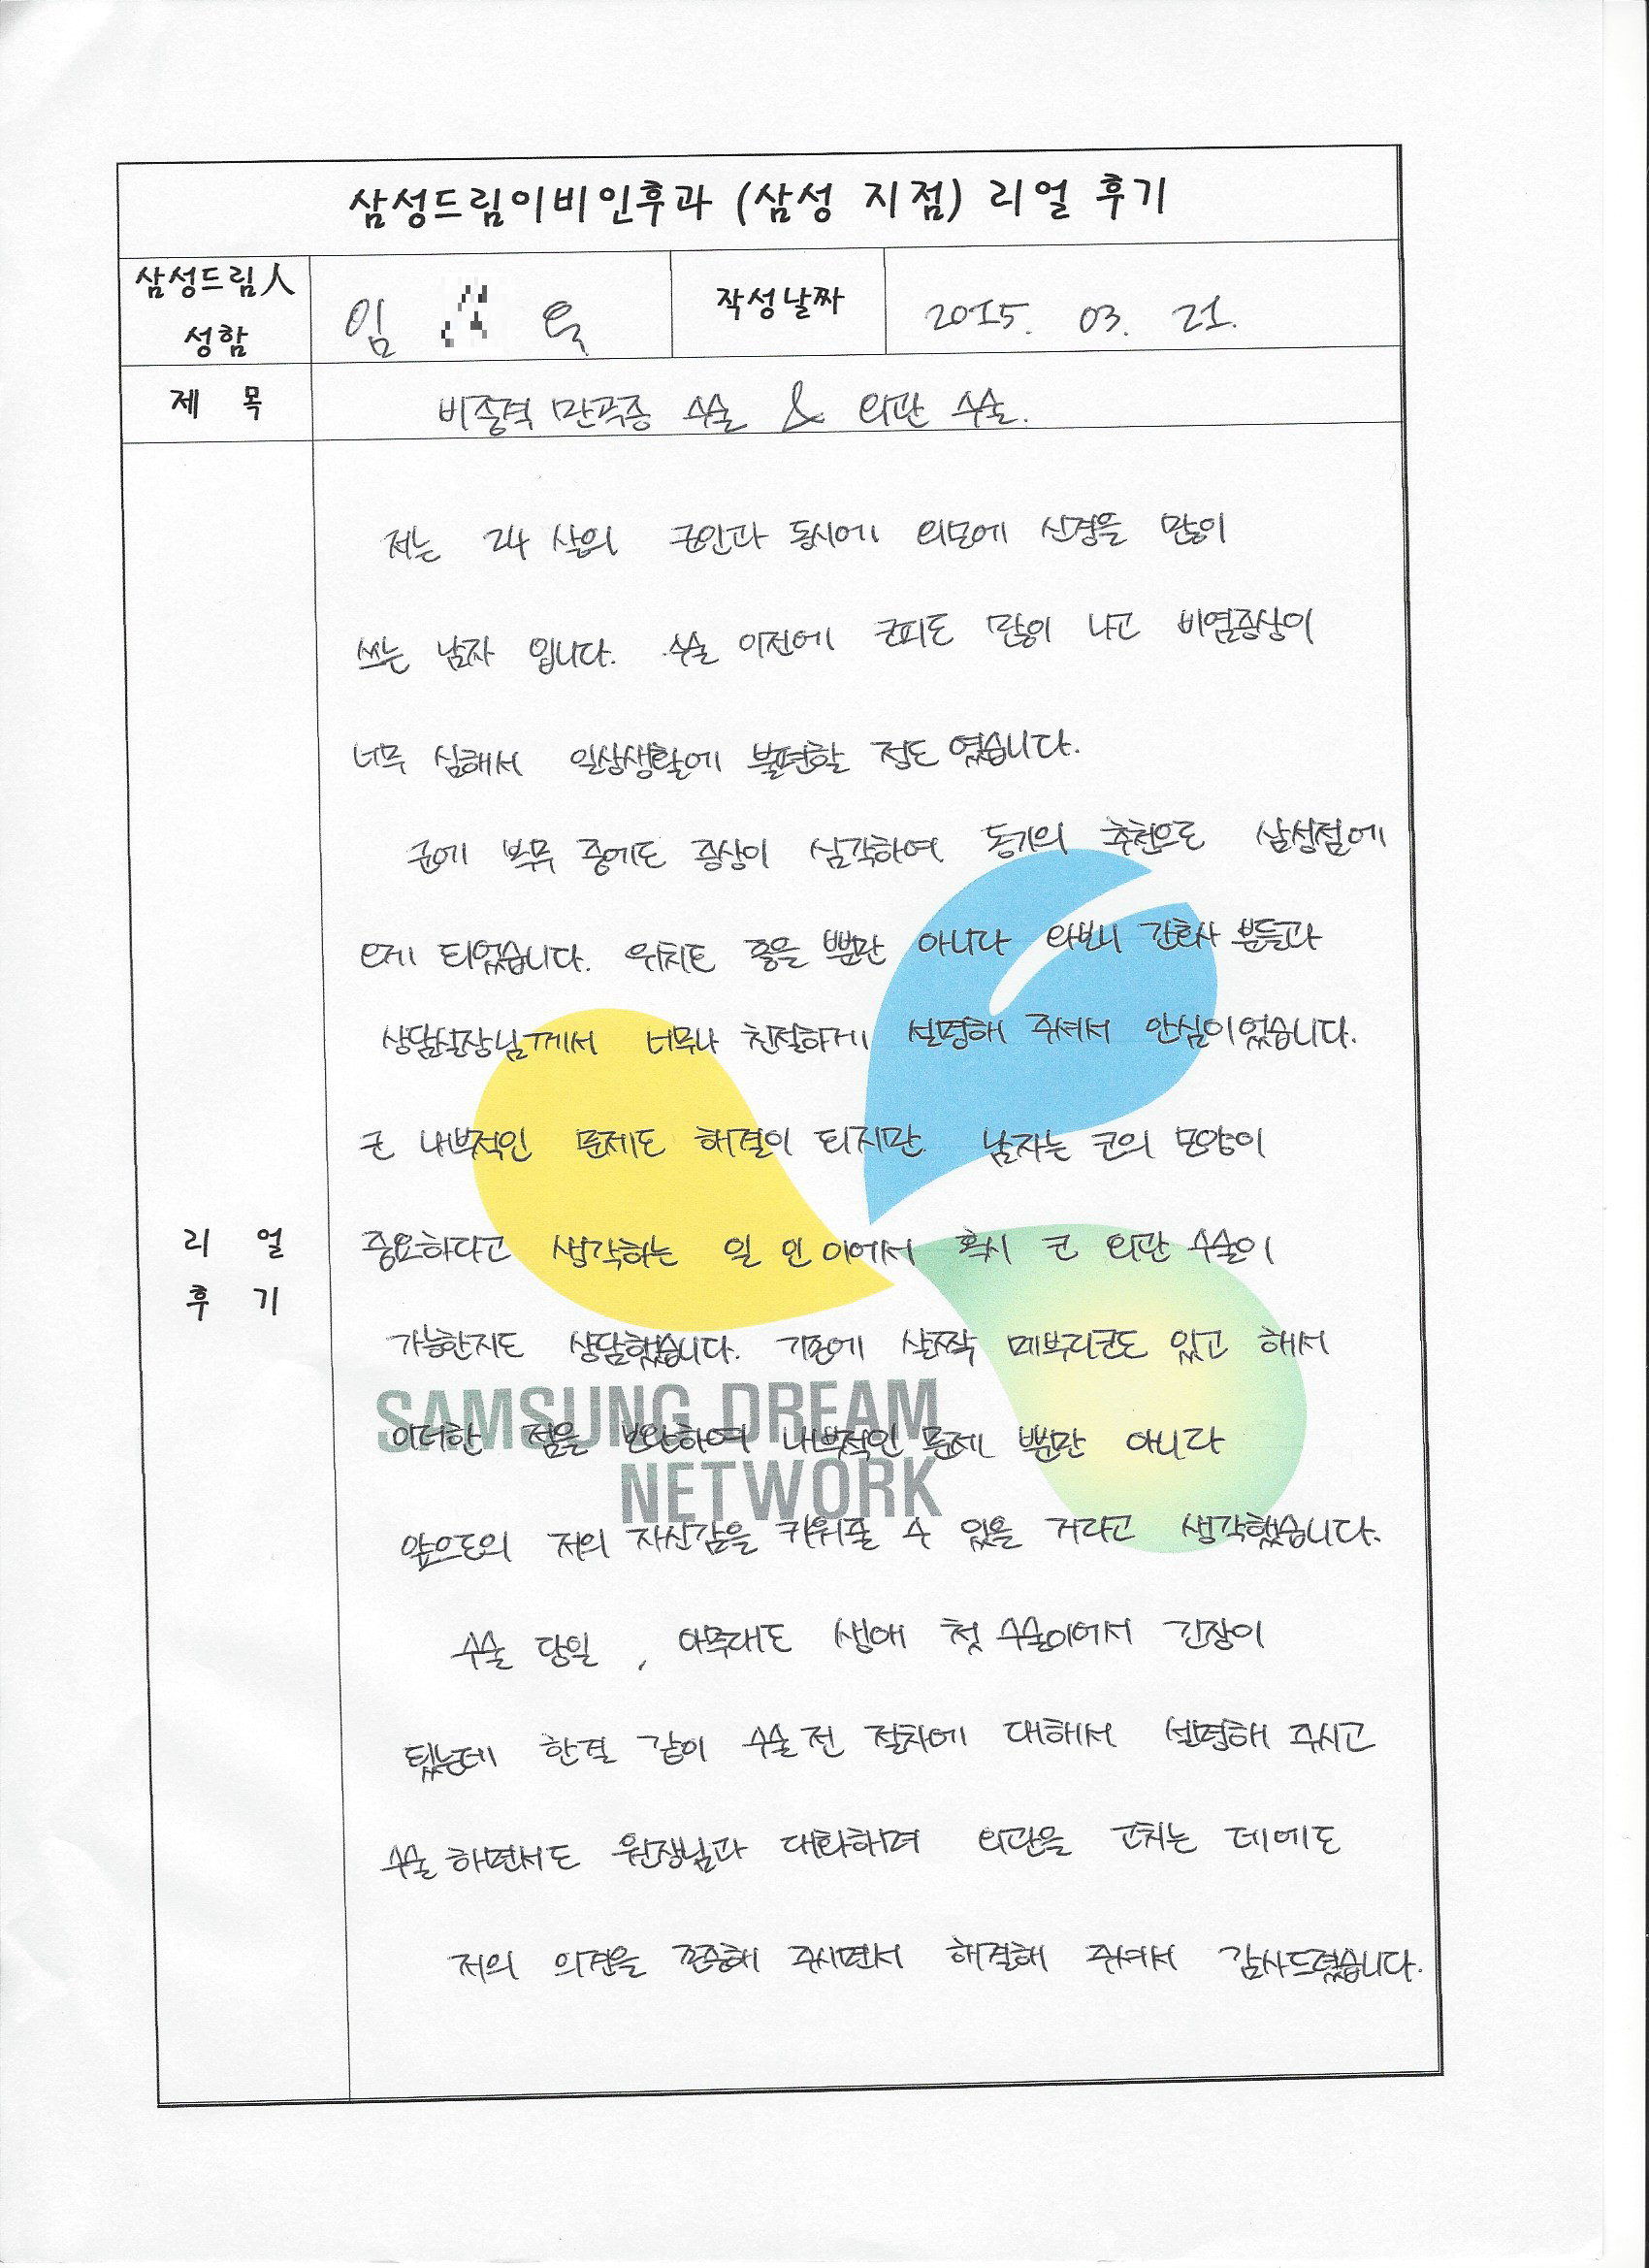 삼성드림이비인후과 (삼성 지점) 리얼 후기
삼성드림人 성함
임 욱
작성날짜
2015. 03. 21.
제 목
비중격 만곡증 수술 & 외관 수술.
리 얼
후 기
저는 24살의 군인과 동시에 외모에 신경을 많이
쓰는 남자 입니다. 수술 이전에 코피도 많이 나고 비염증상이
너무 심해서 일상생활에 불편할 정도 였습니다.
군에 복무 중에도 증상이 심각하여 동기의 추천으로 삼성점에
오게 되었습니다. 위치도 좋을 뿐만 아니라 간호사 분들과
상담실장님께서 너무나 친절하게 설명해 주셔서 안심이었습니다.
코 내부적인 문제도 해결이 되지만 남자는 코의 모양이
중요하다고 생각하는 일 인 이에서 혹시 코 외관 수술이
가능한지도 상담했습니다. 기존에 살짝 메부리코도 있고 해서
이러한 점을 보완하여 내부적인 문제 뿐만 아니라
앞으로의 저의 자신감을 키워줄 수 있을 거라고 생각했습니다.
수술 당일 , 아무래도 생애 첫 수술이에서 긴장이
됬는데 한결 같이 수술 전 절차에 대해서 설명해 주시고
수술 하면서도 원장님과 대화하며 외관을 고치는 데에도
저의 의견을 존중해 주시면서 해결해 주셔서 감사드렸습니다.
SAMSUNG DREAM
NETWORK